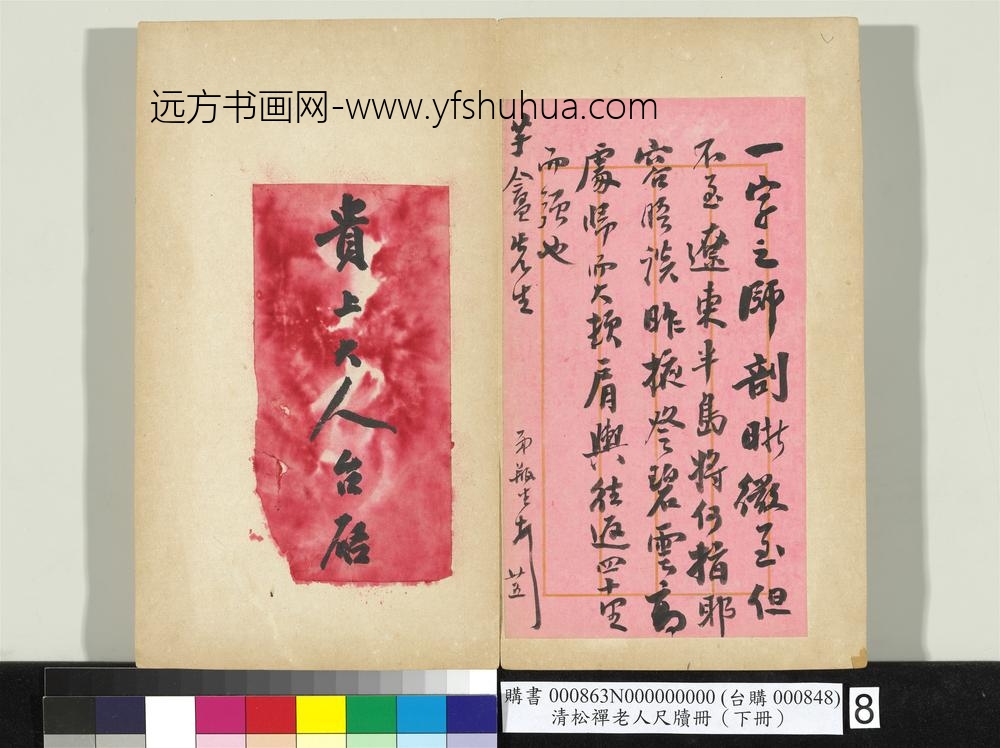 远方书画网-www.yfshuhua.com
一字之師剖晰微至但
不至遼東半島將何指耶
容晤談昨掖登碧雲高
處歸而大頓肩輿往返四十里
而強也
先生
弟瓶生
廿五
貴上大人台啓
購書 000863N000000000 (台購 000848)
清松禪老人尺牘冊（下冊）
8